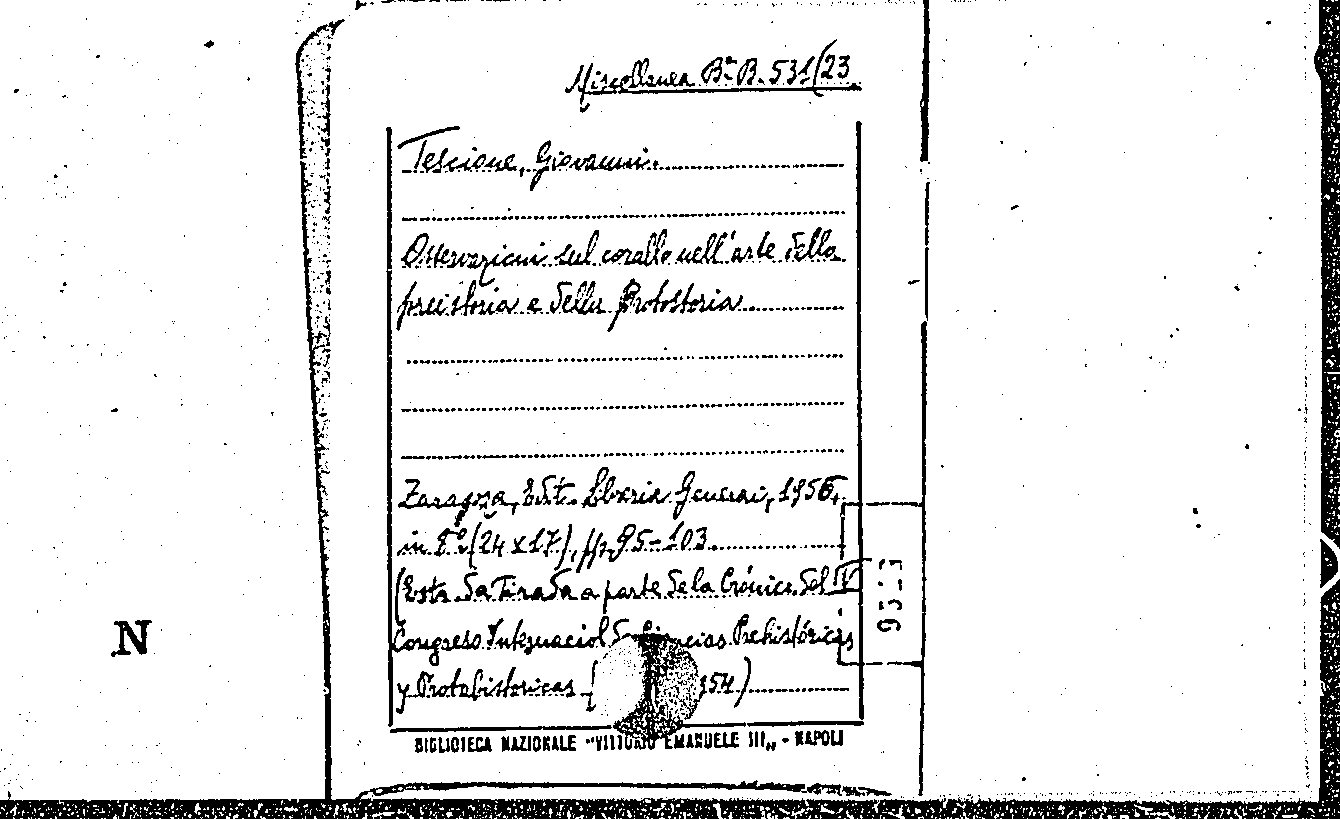 Miscellanea Bª B. 531/23
Tescione, Giovanni.
Osservazioni sul corallo nell'arte della
preistoria e della Protostoria.
Zaragoza, Est. Libreria General, 1956,
in 8º (24 x 17), pp. 95-103.
(Esta da Tirada a parte de la Crónica del IV
Congreso Internaciol Prehistóricas
y Protohistoricas ( 954)
N
BIBLIOTECA NAZIONALE "VITTORIO EMANUELE III„ - NAPOLI